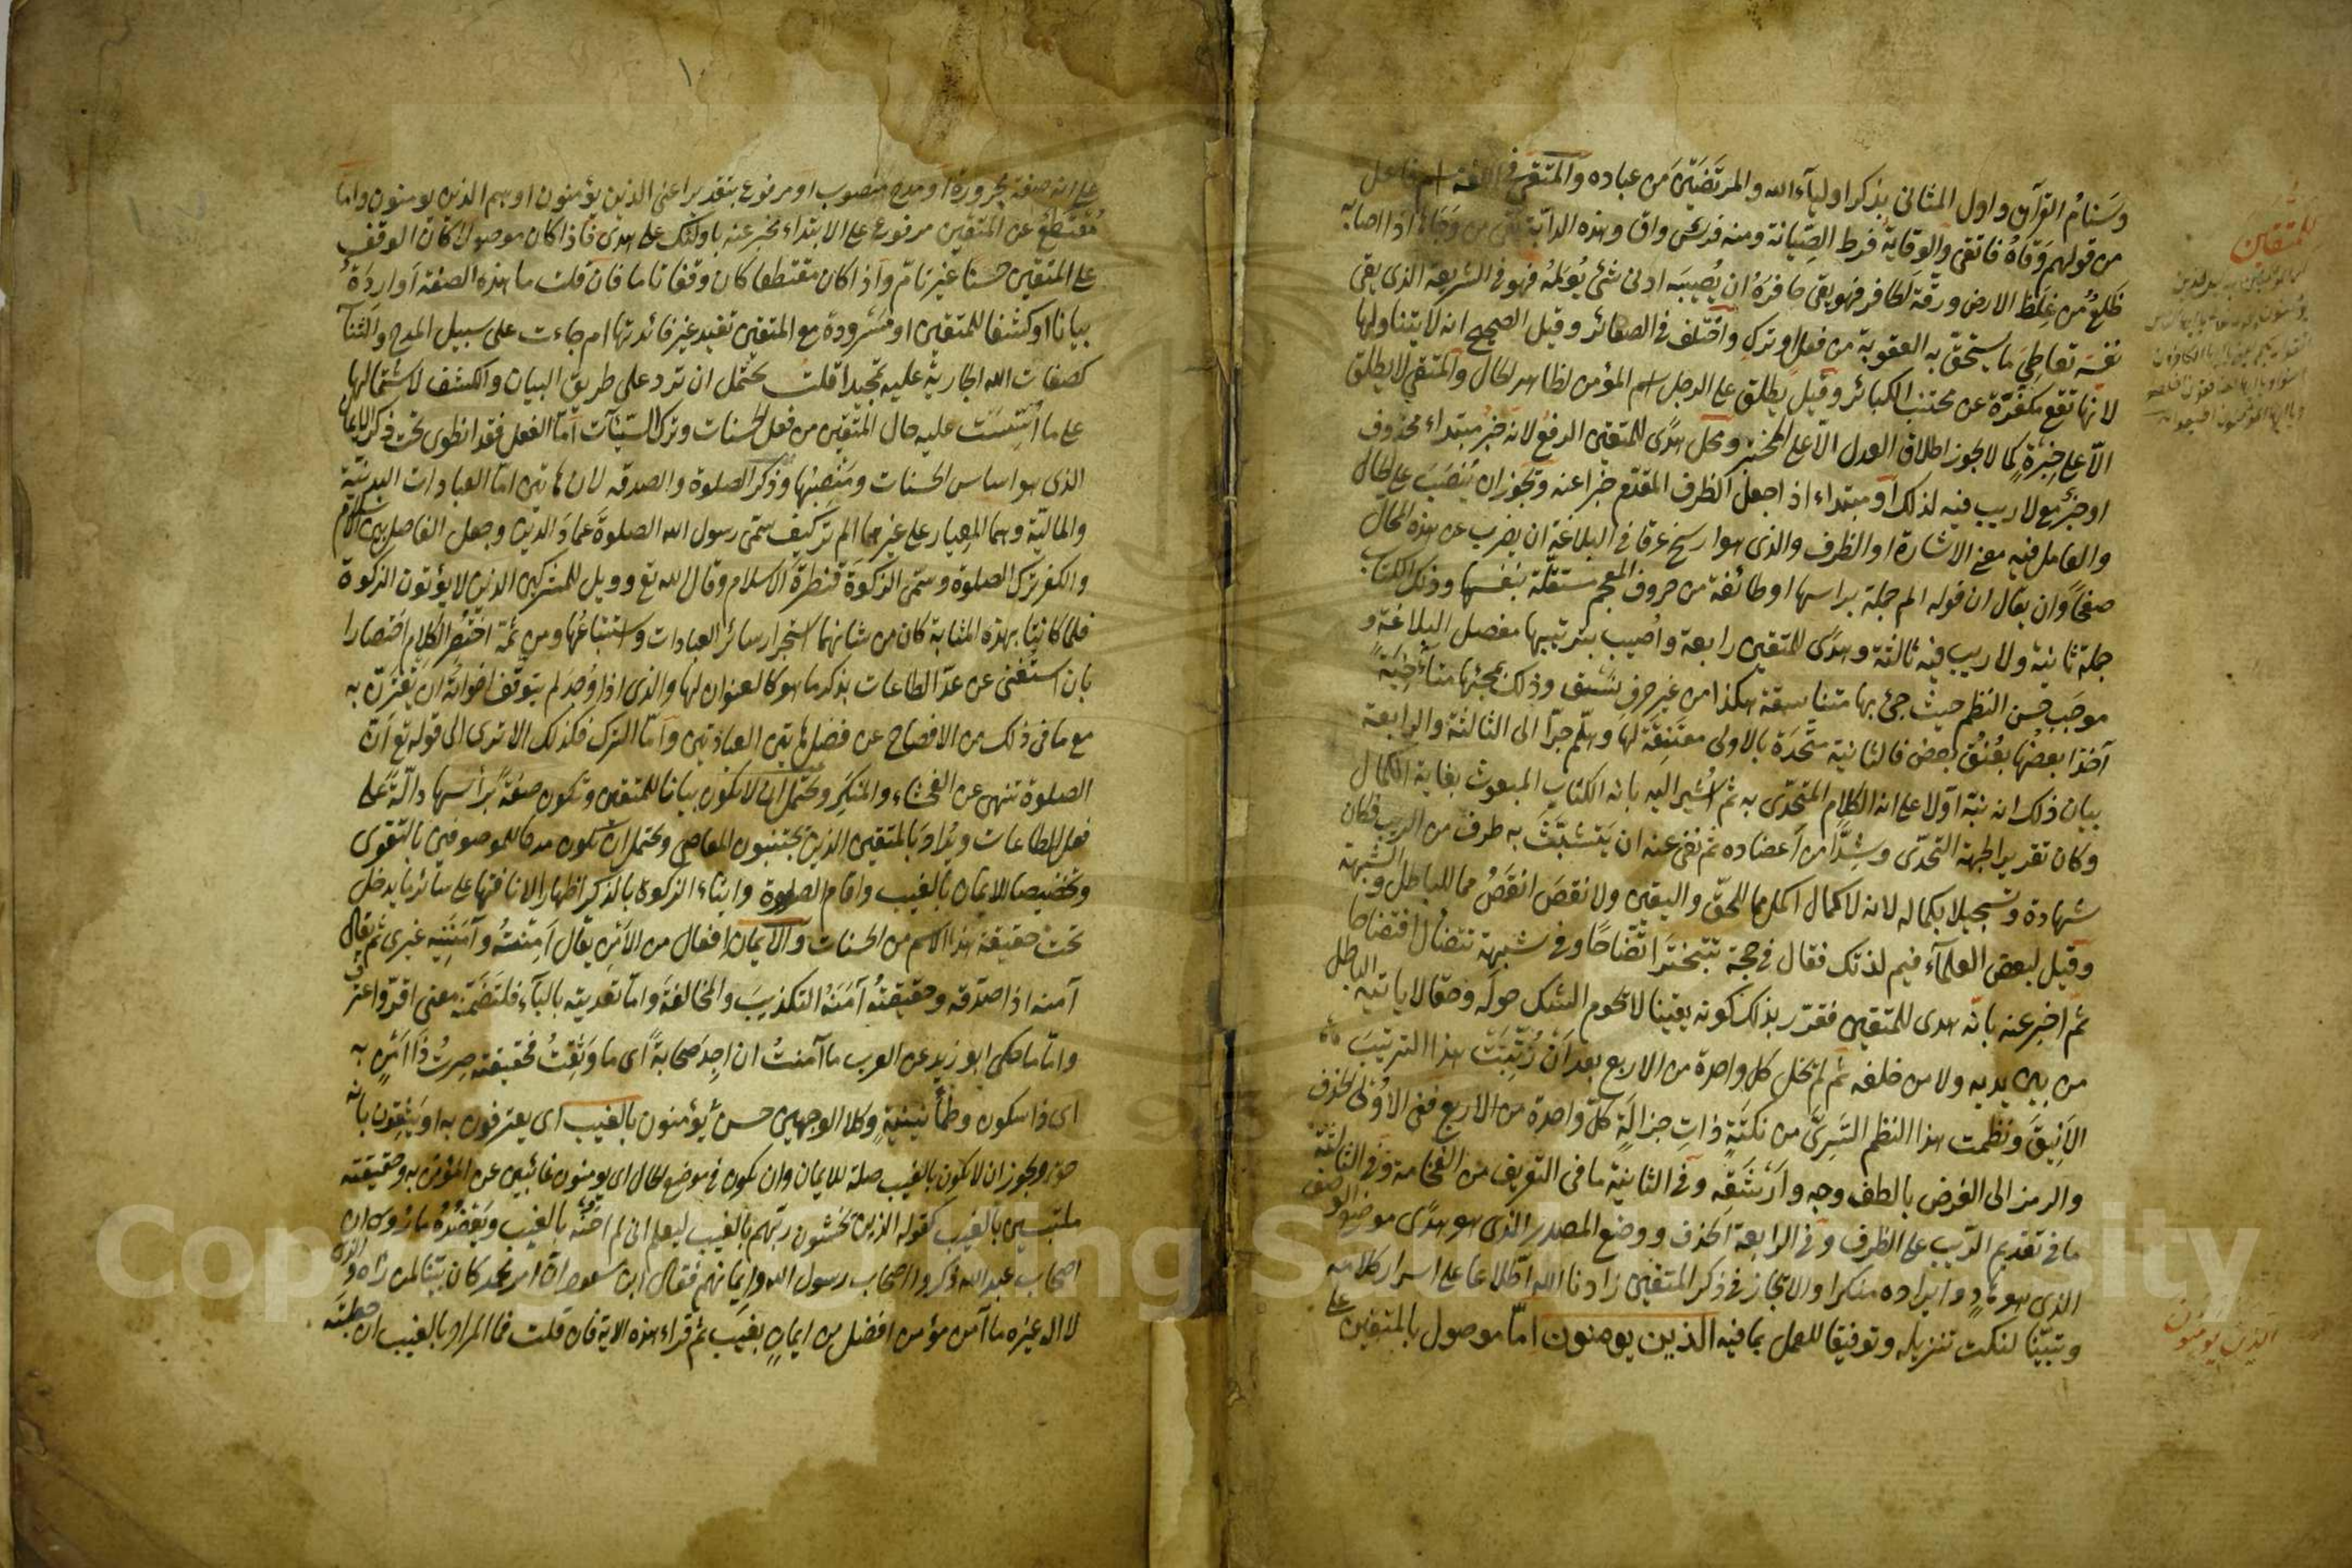 وسَنامُ القرآن واول المثاني بذكر اولياء الله والمرتَضَيْنَ من عباده والمتقي في اللغة اسم فاعل
من قولهم وَقاهُ فاتقى والوِقاية فرط الصِّيانة ومنه فرس واق وهذه الدابة تقي من وَجَاها اذا اصابه
ظَلَعٌ من غِلَظ الارض ورقّة الحافر فهو يقي حافرَهُ ان يُصيبَه ادنى شئ يُؤلِمُه فهو في الشريعة الذي يقي
نفسَه تعاطيَ ما يستحق به العقوبة من فعل او ترك واختُلف في الصغائر وقيل الصحيح انه لا يتناولها
لانها تقع مكفَّرة عن مجتنب الكبائر وقيل يطلق على الرجل اسم المؤمن لظاهر الحال والمتقي لا يطلق
الّا على خبرةٍ كما لا يجوز اطلاق العدل الّا على المختبر ومحل هدًى للمتقين الرفع لانه خبر مبتداء محذوف
او خبرٌ مع لا ريب فيه لذلك او مبتداء اذا جعل الظرف المقدّم خبرا عنه ويجوز ان يُنصَبَ على الحال
والعامل فيه معنى الاشارة او الظرف والذي هو ارسخ عرقا في البلاغة ان يضرب عن هذه المحالّ
صفحًا وان يقال ان قوله الم جملة براسها او طائفة من حروف المعجم مستقلّة بنفسها وذلك الكتاب
جملة ثانية ولا ريب فيه ثالثة وهدًى للمتقين رابعة واُصيب بترتيبها مفصل البلاغة و
موجَب حسن النظم حيث جئ بها متناسقة هكذا من غير حرفِ نَسَقٍ وذلك لمجئها متأخيَةً
آخذا بعضُها بعُنُق بعض فالثانية متّحدة بالاولى معتنِقة لها وهلمّ جرّا الى الثالثة والرابعة
بيان ذلك انه نبّه اوّلا على انه الكلام المتحدّى به ثم اُشير اليه بانه الكتاب المبعوث بغاية الكمال
وكان تقريرا لجهة التحدّى وشدًّا من اَعضاده ثم نفى عنه ان يَتشبَّثَ به طرف من الريب فكان
شهادة وتسجيلا بكماله لانه لا كمال اكمل مما للحقّ واليقين ولا نقصَ انقَصُ مما للباطل والشبهة
وقيل لبعض العلماء فيم لذتك فقال في حجة تتبخترُ اتّضاحًا وفي شبهة تتضأل افتضاحا
ثم اخبر عنه بانّه هدى للمتقين فقرّر بذلك كونه يقينا لا يحوم الشك حولَه وحقّا لا ياتيه الباطل
من بين يديه ولا من خلفه ثم لم تخل كل واحدة من الاربع بعد اَن رُتِّبَتْ هذا الترتيبَ
الاَنِيقَ ونُظمت هذا النظم السَرِىَّ من نكتةٍ ذاتِ جزالةٍ كلّ واحدة من الاربع ففي الاُولى الحذف
والرمز الى الغرض بالطف وجه واَرْشَقِه وفي الثانية ما في التعريف من الفخامة وفي الثالثة
ما في تقديم الريب على الظرف وفي الرابعة الحذف ووضع المصدر الذي هو هدًى موضع الوصف
الذي هو هادٍ وايراده منكرا والايجاز في ذكر المتقين زادنا الله اطّلاعا على اسرار كلامه
وتبيّنا لنكت تنزيله وتوفيقا للعمل بما فيه الذين يومنون امّا موصول بالمتقين على
للمتقين
الذين يومنون
على انه صفة مجرورة او مدح منصوب او مرفوع بتقدير اعني الذين يؤمنون او هم الذين يومنون واما
مُقتطَعٌ عن المتقين مرفوع على الابتداء مخبر عنه باولئك على هدى فاذا كان موصولا كان الوقف
على المتقين حسنًا غير تامّ واذا كان مقتطعا كان وقفا تاما فان قلت ما هذه الصفة اَواردَةٌ
بيانا وكشفا للمتقين او مسرودة مع المتقين تفيد غير فائدتها ام جاءت على سبيل المدح والثناء
كصفات الله الجارية عليه تمجيدا قلت يحتمل ان ترد على طريق البيان والكشف لاشتمالها
على ما اُسِّسَت عليه حال المتّقين من فعل الحسنات وترك السيئات امّا الفعل فقد انطوى تحت ذكر الايمان
الذي هو اساس الحسنات ومَنْصِبُها وذكر الصلوة والصدقة لان هاتين امّا العبادات البدنيّة
والماليّة وهما المعيار على غيرهما الم تر كيف سمّى رسول الله الصلوةَ عمادَ الدين وجعل الفاصل بين الاسلام
والكفر ترك الصلوة وسمّى الزكوةَ قنطرةَ الاسلام وقال الله تع وويل للمشركين الذين لا يؤتون الزكوة
فلما كانتا بهذه المثابة كان من شانهما استجرار سائر العبادات واستتباعُها ومن ثمّة اختُصِر الكلام اختصارا
بان استُغنى عن عدّ الطاعات بذكر ما هو كالعنوان لها والذي اذا وُجدَ لم يتوقف اخواتُهُ ان يقترن به
مع ما في ذلك من الافصاح عن فضل هاتين العبادتين وامّا الترك فكذلك الا ترى الى قوله تع اَنّ
الصلوة تنهى عن الفحشاء والمنكر ويحتمل ان لا يكون بيانا للمتقين وتكون صفةً برأسها دالّةً على
فعل الطاعات ويُرادَ بالمتقين الذين يجتنبون المعاصي ويحتمل ان تكون مدحا للموصوفين بالتقوى
وتخصيصا للايمان بالغيب واقام الصلوة وايتاء الزكوة بالذكر اظهارا لانافتها على سائر ما يدخل
تحت حقيقة هذا الاسم من الحسنات والايمان اِفعال من الاَمْن يقال اَمِنتُهُ واٰمَنَنِيه غيرى ثم يقال
آمنه اذا صدّقه وحقيقتُه اٰمَنَهُ التكذيبَ والمخالفةَ وامّا تعديته بالباء فلتضمنه معنى اقرّ واعترف
وامّا ما حكى ابو زيد عن العرب ما اٰمنتُ ان اجدَ صحابةً اى ما وَثِقتُ فحقيقته صِرتُ ذا اَمْنٍ به
اى ذا سكون وطمأنينيةٍ وكلا الوجهين حسن يُؤمنون بالغيب اى يعترفون به او يَثِقون بانه
حق ويجوز ان لا يكون بالغيب صلة للايمان وان يكون في موضع الحال اى يومنون غائبين عن المؤمن به وحقيقته
ملتبسين بالغيب كقوله الذين يخشون ربّهم بالغيب ليعلم انى لم اَخُنْهُ بالغيب ويَعْضُدُهُ ما روى ان
اصحاب عبد الله ذكروا اصحاب رسول الله وايمانهم فقال ابن مسعود ان امر محمد كان بيّنا لمن راٰه والذى
لا اله غيره ما اٰمن مؤمن افضل من ايمانٍ بغيب ثم قراء هذه الاية فان قلت فما المراد بالغيب ان جعلتَه
Copyright © King Saud University